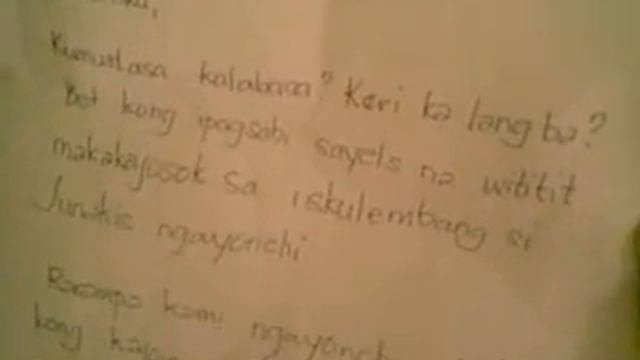 Kumustasa kalabasa? Keri ka lang ba?
Bet kong ipagsabi sayels na wititit
makakajosok sa iskulembang si
Junakis ngayonchi
kami
kong